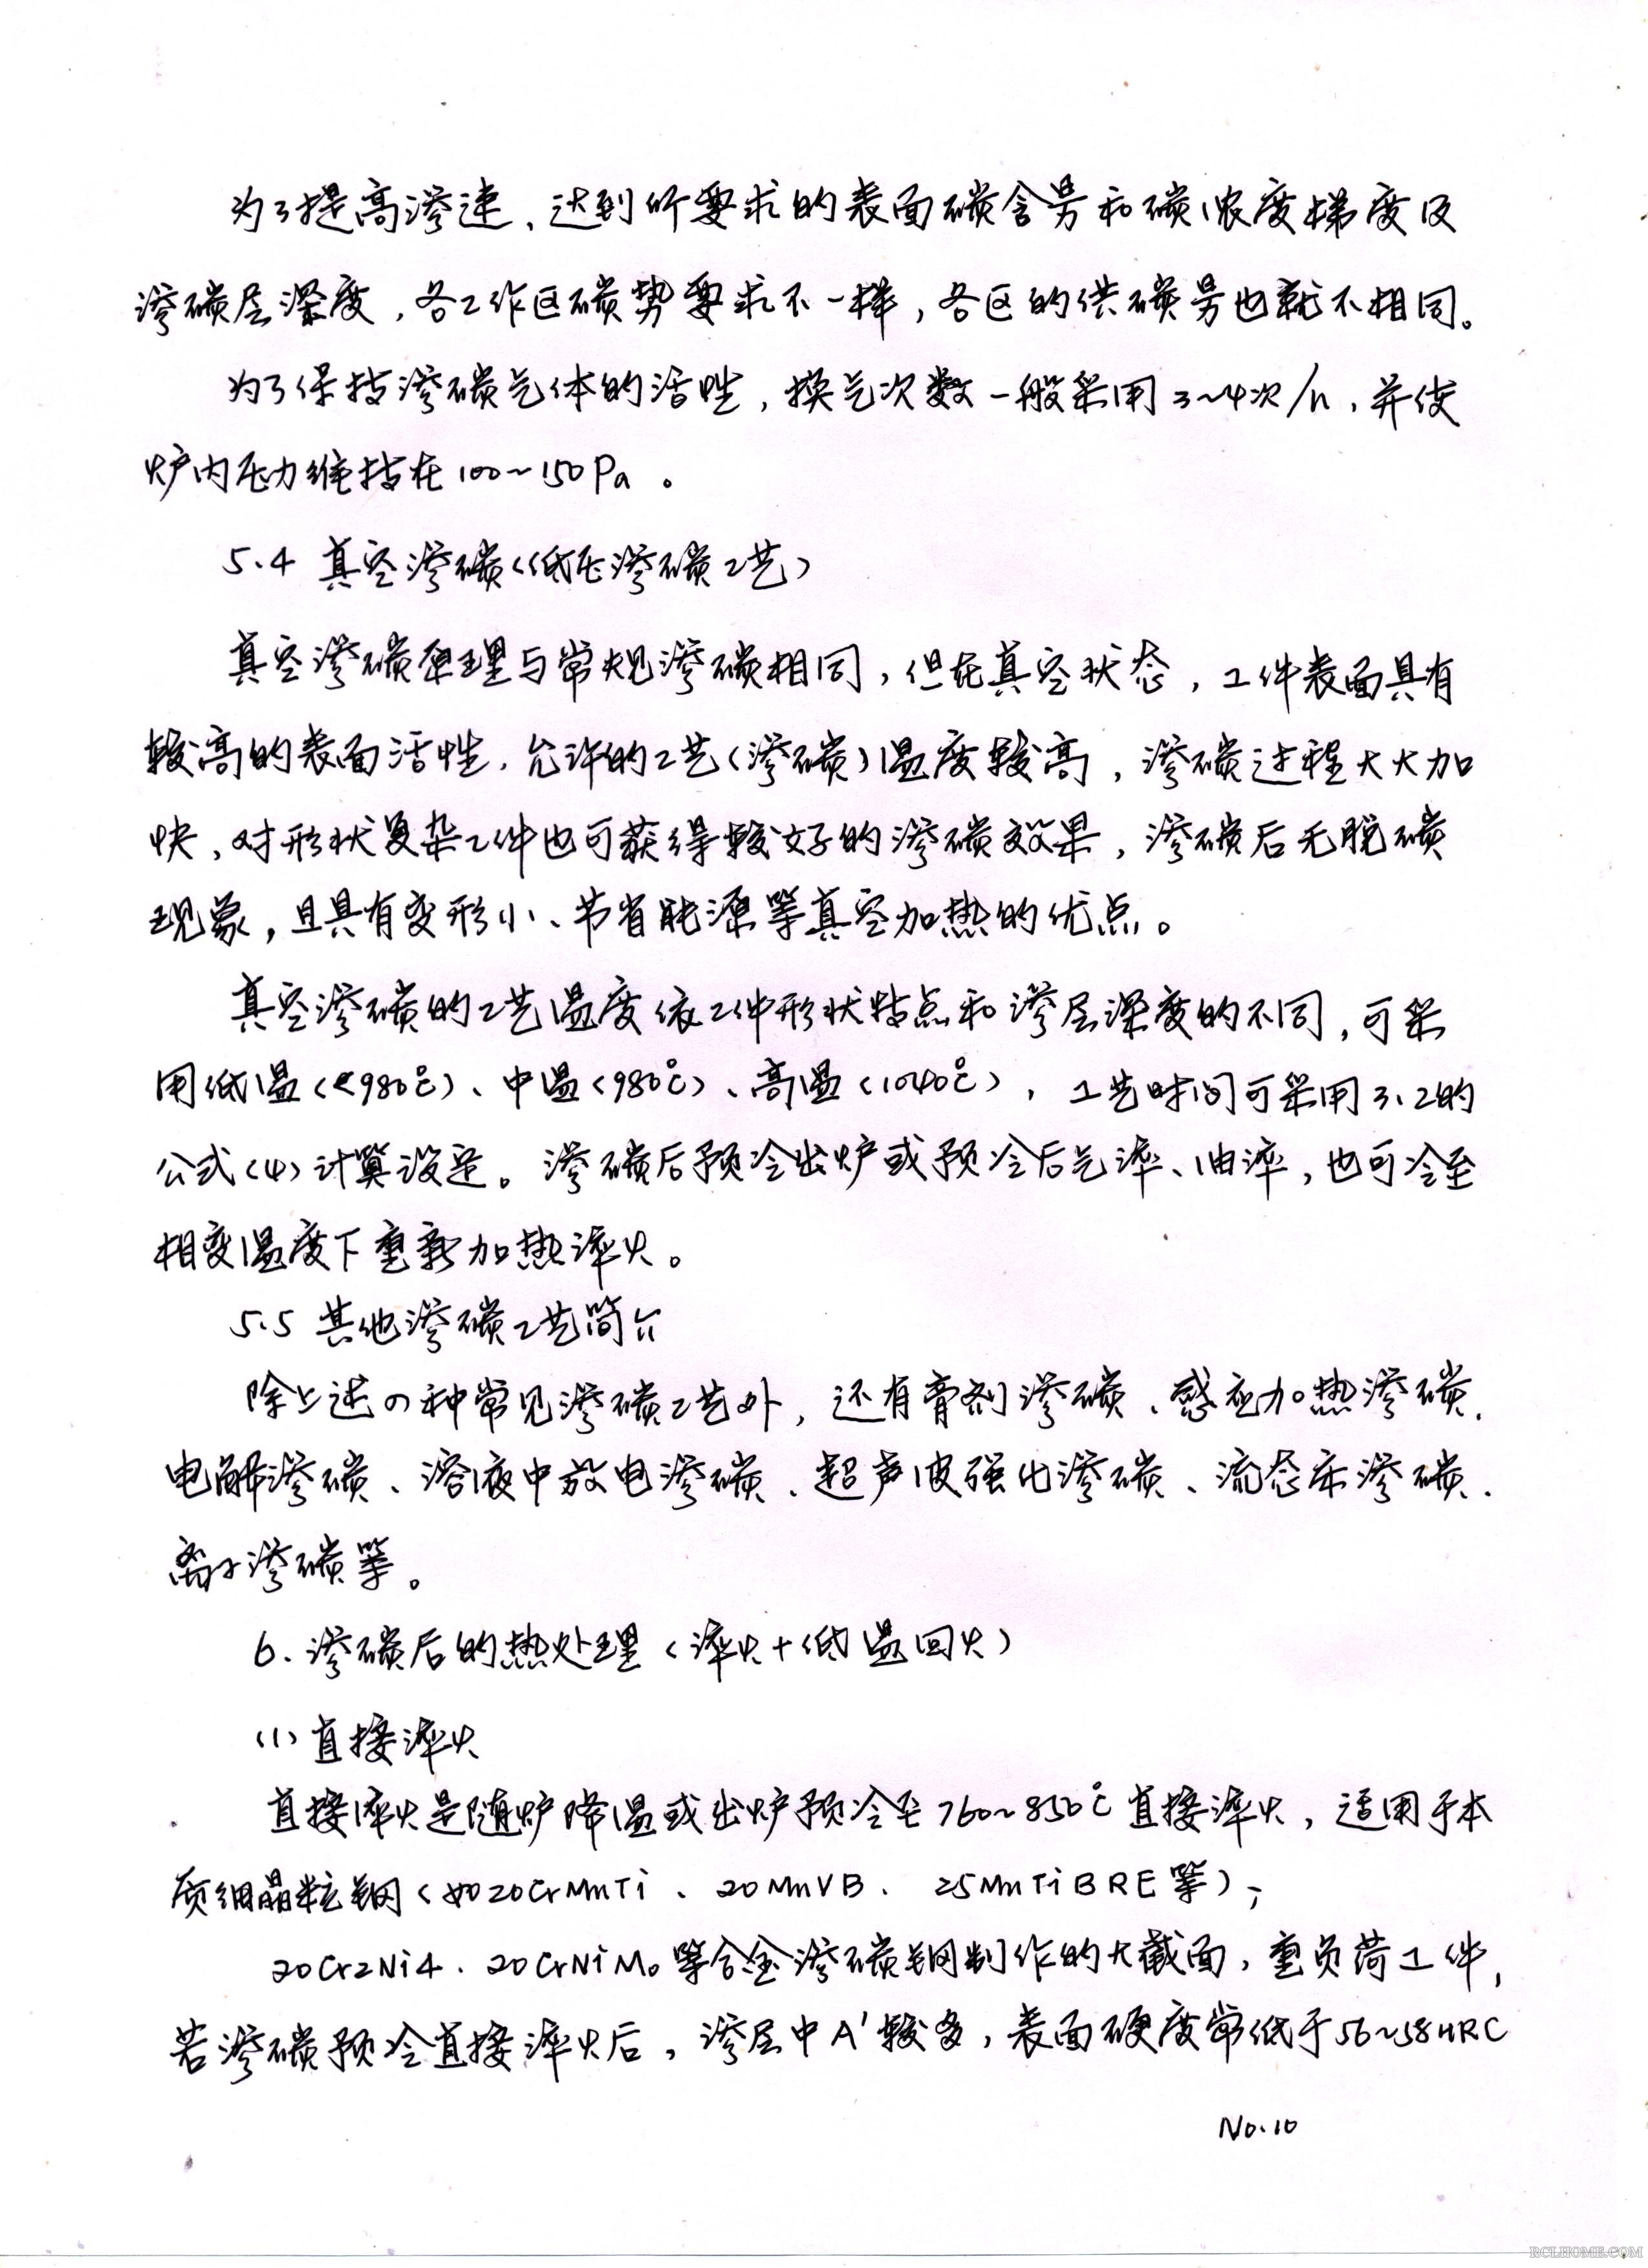 为了提高渗速，达到所要求的表面碳含量和碳浓度梯度及
渗碳层深度，各工作区碳势要求不一样，各区的供碳量也就不相同。
为了保持渗碳气体的活性，换气次数一般采用3~4次/h，并使
炉内压力维持在100~150Pa。
5.4 真空渗碳（低压渗碳工艺）
真空渗碳原理与常规渗碳相同，但在真空状态，工件表面具有
较高的表面活性，允许的工艺（渗碳）温度较高，渗碳过程大大加
快，对形状复杂工件也可获得较好的渗碳效果，渗碳后无脱碳
现象，且具有变形小、节省能源等真空加热的优点。
真空渗碳的工艺温度依工件形状特点和渗层深度的不同，可采
用低温（<980℃）、中温（980℃）、高温（1040℃），工艺时间可采用3.2的
公式（4）计算设定。渗碳后预冷出炉或预冷后气淬、油淬，也可冷至
相变温度下重新加热淬火。
5.5 其他渗碳工艺简介
除上述四种常见渗碳工艺外，还有膏剂渗碳、感应加热渗碳、
电解渗碳、溶液中放电渗碳、超声波强化渗碳、流态床渗碳、
离子渗碳等。
6. 渗碳后的热处理（淬火+低温回火）
（1）直接淬火
直接淬火是随炉降温或出炉预冷至760~850℃直接淬火，适用于本
质细晶粒钢（如20CrMnTi、20MnVB、25MnTiBRE等）；
20Cr2Ni4、20CrNiMo等合金渗碳钢制作的大截面，重负荷工件，
若渗碳预冷直接淬火后，渗层中A'较多，表面硬度常低于56~58HRC
No.10
RCLHOME.COM